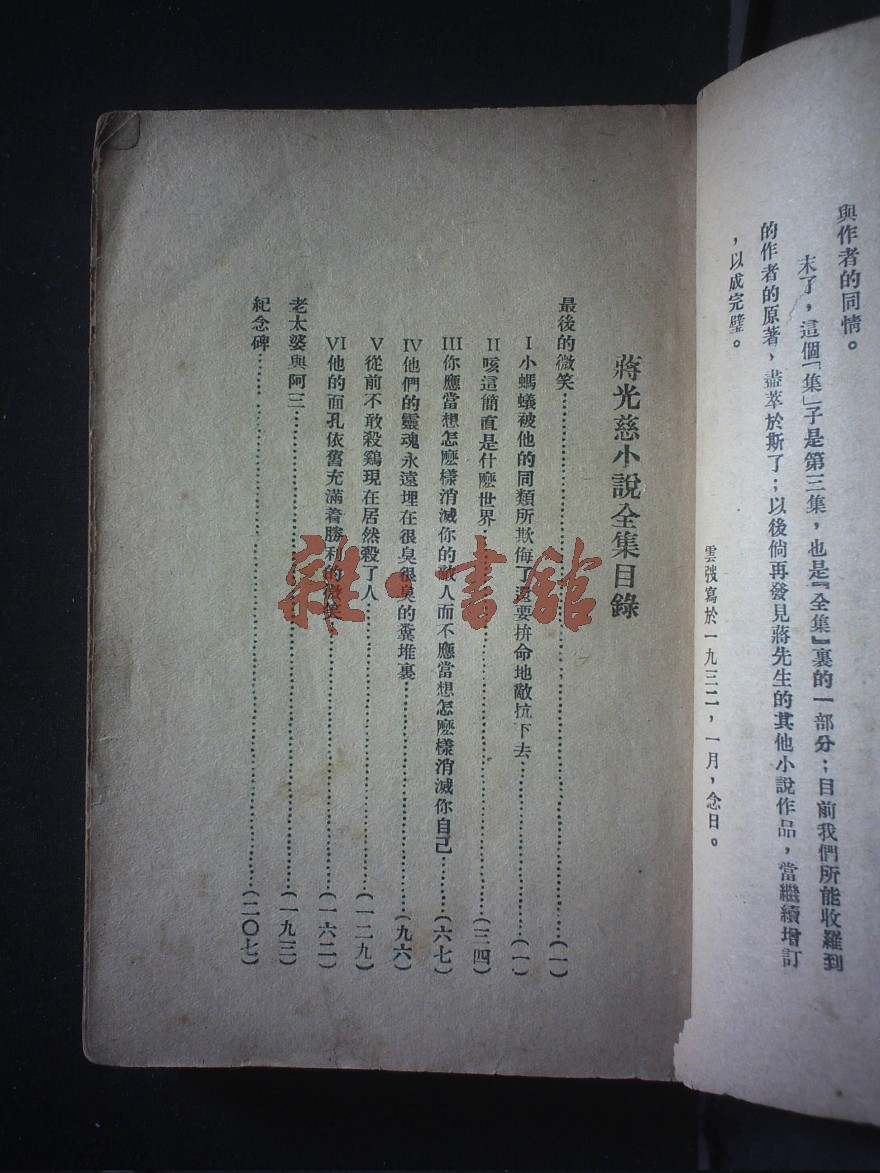 與作者的同情。
末了，這個「集」子是第三集，也是『全集』裏的一部分；目前我們所能收羅到
的作者的原著，盡萃於斯了；以後倘再發見蔣先生的其他小說作品，當繼續增訂
，以成完璧。
雲弢寫於一九三二，一月，念日。
蔣光慈小說全集目錄
最後的微笑……(一)
I 小螞蟻被他的同類所欺侮了還要拚命地敵抗下去……(一)
II 咳這簡直是什麽世界……(三四)
III 你應當想怎麽樣消滅你的敵人而不應當想怎麽樣消滅你自己……(六七)
IV 他們的靈魂永遠埋在很臭很臭的糞堆裏……(九六)
V 從前不敢殺鷄現在居然殺了人……(一二九)
VI 他的面孔依舊充滿着勝利的微笑……(一六二)
老太婆與阿三……(一九三)
紀念碑……(二〇七)
雜·書館